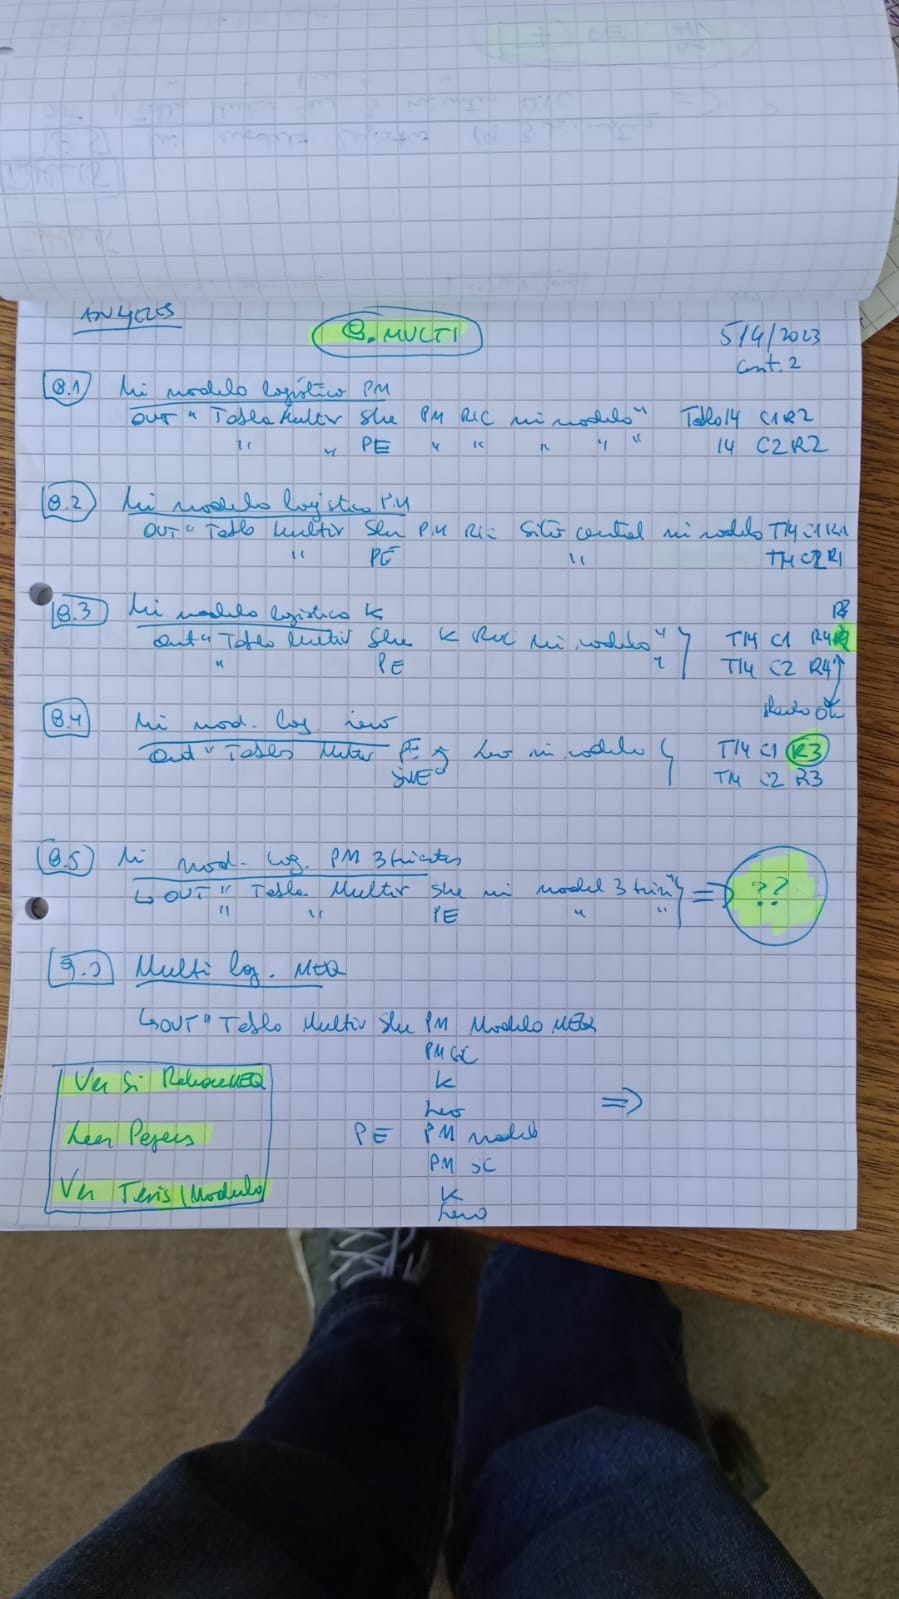 ANGELES
8. MULTI
5/4/2023
cont. 2
8.1 Mi modelo logístico PM
OUT " Tabla Multiv She PM RIC mi modelo" Tabla 14 C1R2
" " PE " " " " " 14 C2R2
8.2 Mi modelo logístico PM
OUT " Tabla Multiv She PM RIC sitio central mi modelo T14 C1R1
" PE " T14 C2R1
8.3 Mi modelo logístico K
Out " Tabla Multiv She K RIC mi modelo" T14 C1 R4
" PE " T14 C2 R4
OK
8.4 Mi mod. log. leve
Out " Tablas Multiv PE y leve mi modelo T14 C1 R3
SHE T14 C2 R3
8.5 Mi mod. log. PM 3 trientes
↳ OUT " Tabla Multiv She mi model 3 trien" => ??
" " PE " "
9.) Multi log. MEQ
↳ OUT " Tabla Multiv She PM Modelo MEQ
PM SC
K
Leve =>
PE PM modelo
PM SC
K
Leve
Ver si Rehace MEQ
Leer Papers
Ver Tesis / Modulo